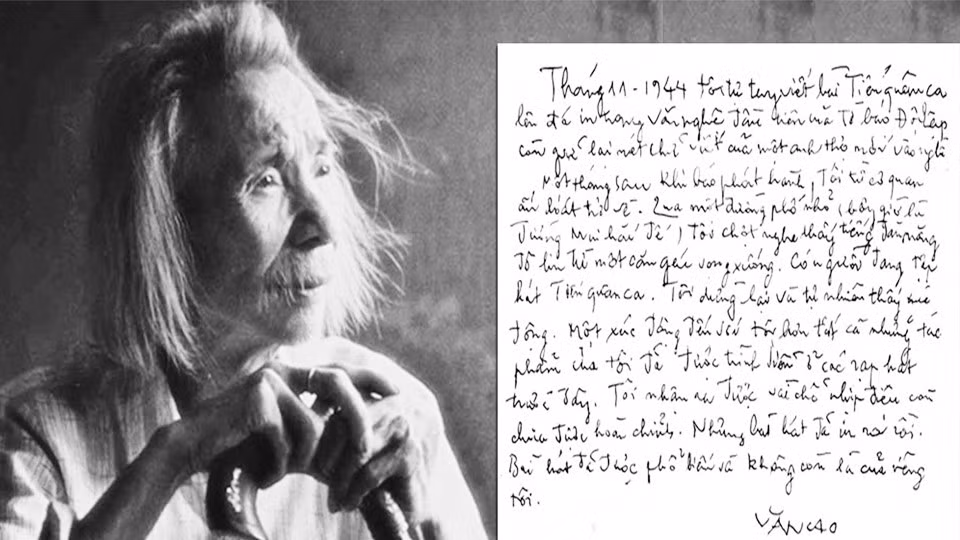 Tháng 11-1944 tôi tự tay viết bài Tiến quân ca
lên đá in trang văn nghệ đầu tiên của tờ báo Độc lập
còn giữ lại nét chữ viết của một anh thợ mới vào nghề
Một tháng sau khi báo phát hành, Tôi từ cơ quan
ấn loát trở về. Qua một đường phố nhỏ, (bây giờ là
đường Mai hắc Đế) Tôi chợt nghe thấy tiếng đàn măng
đô lin từ một căn gác vọng xuống. Có người đang tập
hát Tiến quân ca. Tôi dừng lại và tự nhiên thấy xúc
động. Một xúc động đến với tôi hơn tất cả những tác
phẩm của tôi đã được trình diễn ở các rạp hát
trước đây. Tôi nhận ra được vài chỗ nhịp điệu còn
chưa được hoàn chỉnh. Nhưng bài hát đã in ra rồi.
Bài hát đã được phổ biến và không còn là của riêng
tôi.
VĂN CAO